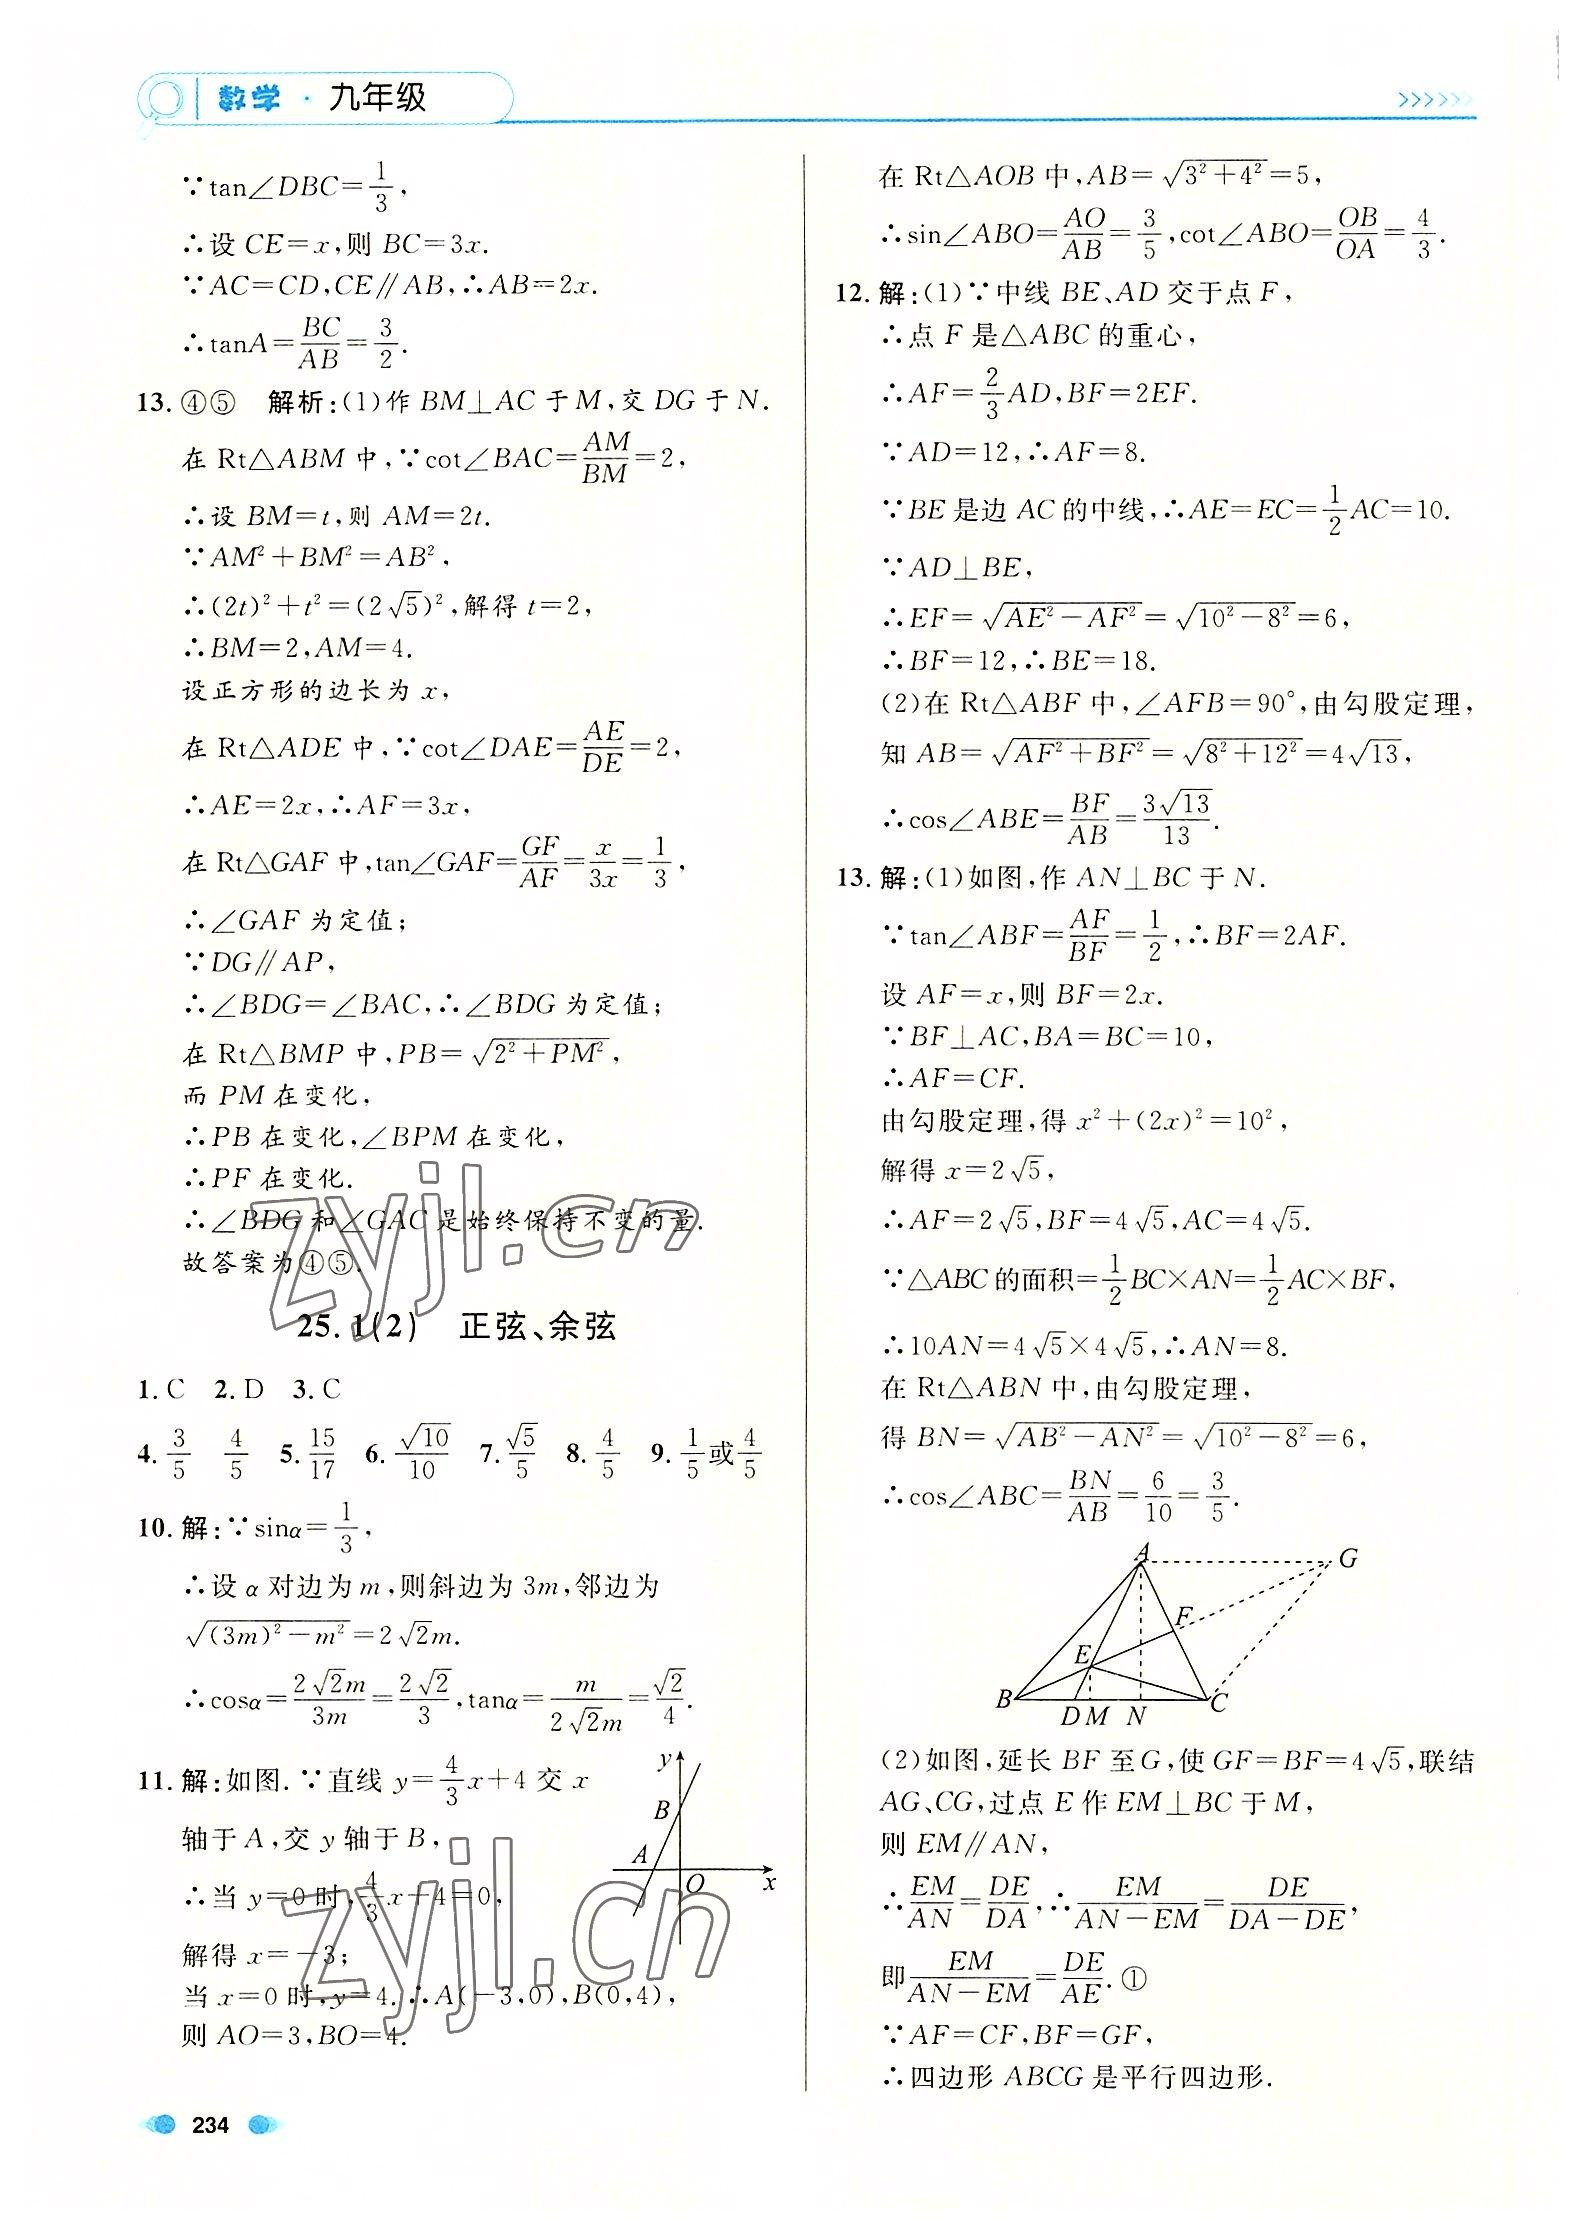 数学 · 九年级
∵tan∠DBC=1/3,
∴设 CE=x,则 BC=3x.
∵AC=CD,CE∥AB,∴AB=2x.
∴tanA=BC/AB=3/2.
13. ④⑤ 解析:(1)作 BM⊥AC 于 M,交 DG 于 N.
在 Rt△ABM 中,∵cot∠BAC=AM/BM=2,
∴设 BM=t,则 AM=2t.
∵AM²+BM²=AB²,
∴(2t)²+t²=(2√5)²,解得 t=2,
∴BM=2,AM=4.
设正方形的边长为 x,
在 Rt△ADE 中,∵cot∠DAE=AE/DE=2,
∴AE=2x,∴AF=3x,
在 Rt△GAF 中,tan∠GAF=GF/AF=x/3x=1/3,
∴∠GAF 为定值;
∵DG∥AP,
∴∠BDG=∠BAC,∴∠BDG 为定值;
在 Rt△BMP 中,PB=√(2²+PM²),
而 PM 在变化,
∴PB 在变化,∠BPM 在变化,
∴PF 在变化.
∴∠BDG 和∠GAC 是始终保持不变的量.
故答案为④⑤.
25.1(2) 正弦、余弦
1. C 2. D 3. C
4. 3/5 4/5 5. 15/17 6. √10/10 7. √5/5 8. 4/5 9. 1/5或4/5
10. 解:∵sinα=1/3,
∴设 α 对边为 m,则斜边为 3m,邻边为
√((3m)²-m²)=2√2m.
∴cosα=2√2m/3m=2√2/3,tanα=m/2√2m=√2/4.
11. 解:如图.∵直线 y=4/3x+4 交 x
轴于 A,交 y 轴于 B,
∴当 y=0 时,4/3x+4=0,
解得 x=-3;
当 x=0 时,y=4.∴A(-3,0),B(0,4),
则 AO=3,BO=4.
y
B
A
O
x
在 Rt△AOB 中,AB=√(3²+4²)=5,
∴sin∠ABO=AO/AB=3/5,cot∠ABO=OB/OA=4/3.
12. 解:(1)∵中线 BE、AD 交于点 F,
∴点 F 是△ABC 的重心,
∴AF=2/3AD,BF=2EF.
∵AD=12,∴AF=8.
∵BE 是边 AC 的中线,∴AE=EC=1/2AC=10.
∵AD⊥BE,
∴EF=√(AE²-AF²)=√(10²-8²)=6,
∴BF=12,∴BE=18.
(2)在 Rt△ABF 中,∠AFB=90°,由勾股定理,
知 AB=√(AF²+BF²)=√(8²+12²)=4√13,
∴cos∠ABE=BF/AB=3√13/13.
13. 解:(1)如图,作 AN⊥BC 于 N.
∵tan∠ABF=AF/BF=1/2,∴BF=2AF.
设 AF=x,则 BF=2x.
∵BF⊥AC,BA=BC=10,
∴AF=CF.
由勾股定理,得 x²+(2x)²=10²,
解得 x=2√5,
∴AF=2√5,BF=4√5,AC=4√5.
∵△ABC 的面积=1/2BC×AN=1/2AC×BF,
∴10AN=4√5×4√5,∴AN=8.
在 Rt△ABN 中,由勾股定理,
得 BN=√(AB²-AN²)=√(10²-8²)=6,
∴cos∠ABC=BN/AB=6/10=3/5.
A G
F
E
B D M N C
(2)如图,延长 BF 至G,使 GF=BF=4√5,联结
AG、CG,过点 E 作 EM⊥BC 于 M,
则 EM∥AN,
∴EM/AN=DE/DA,∴EM/(AN-EM)=DE/(DA-DE),
即EM/(AN-EM)=DE/AE.①
∵AF=CF,BF=GF,
∴四边形 ABCG 是平行四边形.
234
zyjl.cn
zyjl.cn